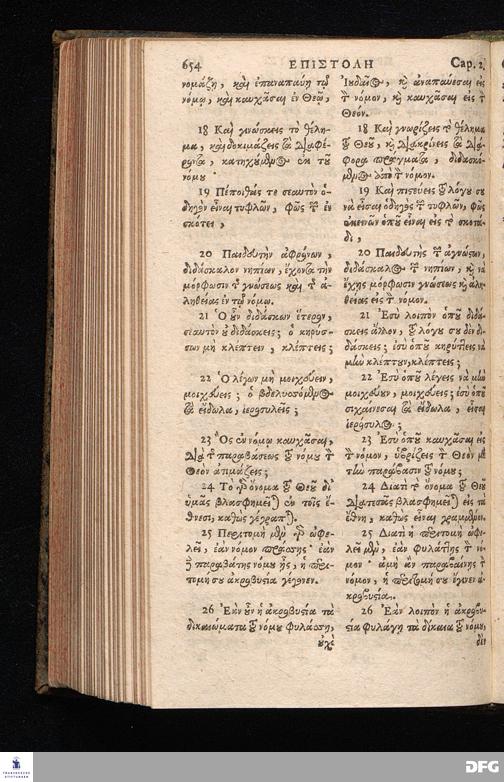 654 ΕΠΙΣΤΟΛΗ Cap. 2.
νομάζῃ, καὶ ἐπαναπαύῃ τῷ
νόμῳ, καὶ καυχᾶσαι ἐν Θεῷ,
18 Καὶ γινώσκεις τὸ θέλη-
μα, καὶ δοκιμάζεις τὰ διαφέ-
ροντα, κατηχούμενος ἐκ τοῦ
νόμου·
19 Πέποιθάς τε σεαυτὸν ὁ-
δηγὸν εἶναι τυφλῶν, φῶς τῶν ἐν
σκότει,
20 Παιδευτὴν ἀφρόνων,
διδάσκαλον νηπίων, ἔχοντα τὴν
μόρφωσιν τῆς γνώσεως καὶ τῆς ἀ-
ληθείας ἐν τῷ νόμῳ.
21 Ὁ οὖν διδάσκων ἕτερον,
σεαυτὸν οὐ διδάσκεις; ὁ κηρύσ-
σων μὴ κλέπτειν, κλέπτεις;
22 Ὁ λέγων μὴ μοιχεύειν,
μοιχεύεις; ὁ βδελυσσόμενος
τὰ εἴδωλα, ἱεροσυλεῖς;
23 Ὃς ἐν νόμῳ καυχᾶσαι,
διὰ τῆς παραβάσεως τοῦ νόμου τὸν
Θεὸν ἀτιμάζεις;
24 Τὸ γὰρ ὄνομα τοῦ Θεοῦ δι'
ὑμᾶς βλασφημεῖται ἐν τοῖς ἔ-
θνεσι, καθὼς γέγραπται.
25 Περιτομὴ μὲν γὰρ ὠφε-
λεῖ, ἐὰν νόμον πράσσῃς· ἐὰν
δὲ παραβάτης νόμου ᾖς, ἡ περι-
τομή σου ἀκροβυστία γέγονεν.
26 Ἐὰν οὖν ἡ ἀκροβυστία τὰ
δικαιώματα τοῦ νόμου φυλάσσῃ,
οὐχὶ
Ἰουδαῖος, καὶ ἀναπαύεσαι εἰς
τὸν νόμον, καὶ καυχᾶσαι εἰς τὸν
Θεόν.
18 Καὶ γνωρίζεις τὸ θέλημα
τοῦ Θεοῦ, καὶ διακρίνεις τὰ διά-
φορα πράγματα, διδασκό-
μενος ἀπὸ τὸν νόμον.
19 Καὶ πιστεύεις τοῦ λόγου σου
νὰ εἶσαι ὁδηγὸς τῶν τυφλῶν, φῶς
ἐκεινῶν ὁποῦ εἶναι εἰς τὸ σκοτά-
δι,
20 Παιδευτὴς τῶν ἀγνώστων,
διδάσκαλος τῶν νηπίων, καὶ νὰ
ἔχῃς μόρφωσιν γνώσεως καὶ ἀλη-
θείας εἰς τὸν νόμον.
21 Ἐσὺ λοιπὸν ὁποῦ διδά-
σκεις ἄλλον, τοῦ λόγου σου δὲν δι-
δάσκεις; ἐσὺ ὁποῦ κηρύττεις νὰ
μὴν κλέπτουν, κλέπτεις;
22 Ἐσὺ ὁποῦ λέγεις νὰ μὴν
μοιχεύουν, μοιχεύεις; ἐσὺ ὁποῦ
σιχαίνεσαι τὰ εἴδωλα, εἶσαι
ἱερόσυλος;
23 Ἐσὺ ὁποῦ καυχᾶσαι εἰς
τὸν νόμον, ὑβρίζεις τὸν Θεὸν μὲ
τὴν παράβασιν τοῦ νόμου;
24 Διατὶ τὸ ὄνομα τοῦ Θεοῦ
διατ' ἐσᾶς βλασφημεῖται εἰς τὰ
ἔθνη, καθὼς εἶναι γραμμένον.
25 Διατὶ ἡ περιτομὴ ὠφε-
λεῖ μὲν, ἐὰν φυλάττῃς τὸν νό-
μον· ἀμὴ ἂν παραβαίνῃς τὸν
νόμον, ἡ περιτομή σου ἔγινεν ἀ-
κροβυστία.
26 Ἐὰν λοιπὸν ἡ ἀκροβυ-
στία φυλάγῃ τὰ δίκαια τοῦ νόμου,
δὲν
FRANCKESCHE
STIFTUNGEN
DFG